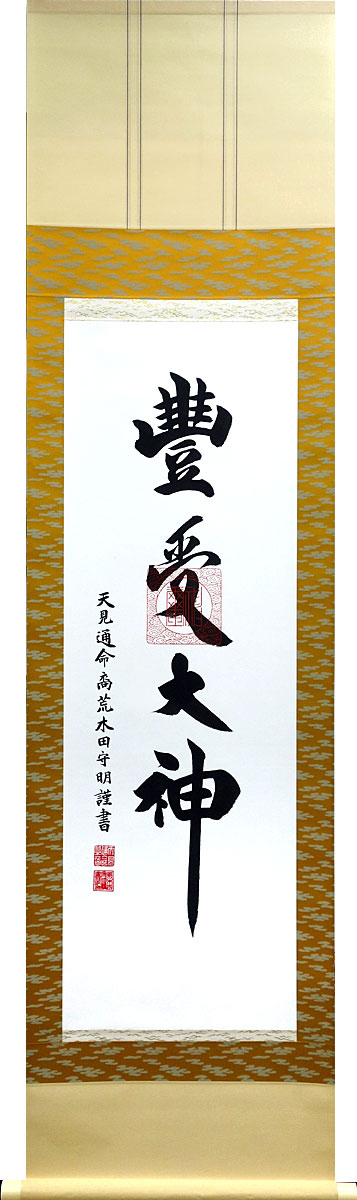 豐受大神
天見通命裔荒木田守明謹書